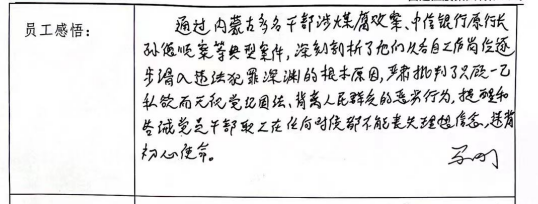 员工感悟：
通过内蒙古多名干部涉煤腐败案、中信银行原行长
孙德顺案等典型案件，深刻剖析了他们从各自工作岗位逐
步滑入违法犯罪深渊的根本原因，严肃批判了只顾一己
私欲而无视党纪国法、背离人民群众的恶劣行为，提醒和
告诫党员干部职工在任何时候都不能丧失理想信念，违背
初心使命。